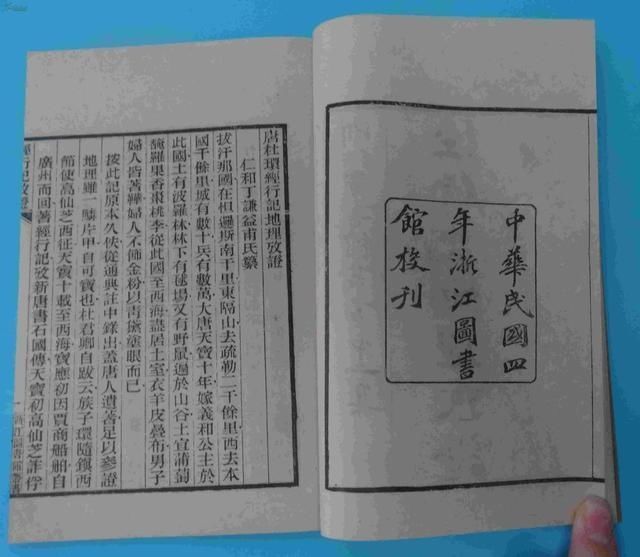 中華民國四
年浙江圖書
館校刊
唐杜環經行記地理攷證
仁和丁謙益甫氏纂
拔汗那國在怛邏斯南千里東隔山去疏勒二千餘里西去本
國千餘里城有數十兵有數萬大唐天寶十年嫁義和公主於
此國土有波羅林林下有毬場又有野鼠遍於山谷土宜蒲萄
馣羅果香棗桃李從此國至西海盡居土室衣羊皮疊布男子
婦人皆著鞾婦人不飾金粉以青黛塗眼而已
按此記原本久佚從通典註中錄出蓋唐人遺著足以參證
地理雖一鱗片甲自可寶也杜君卿自跋云族子環隨鎮西
節使高仙芝西征天寶十載至西海寶應初因賈商船舶自
廣州而回著經行記攷新唐書石國傳天寶初高仙芝誣俘
經行記攷證
一